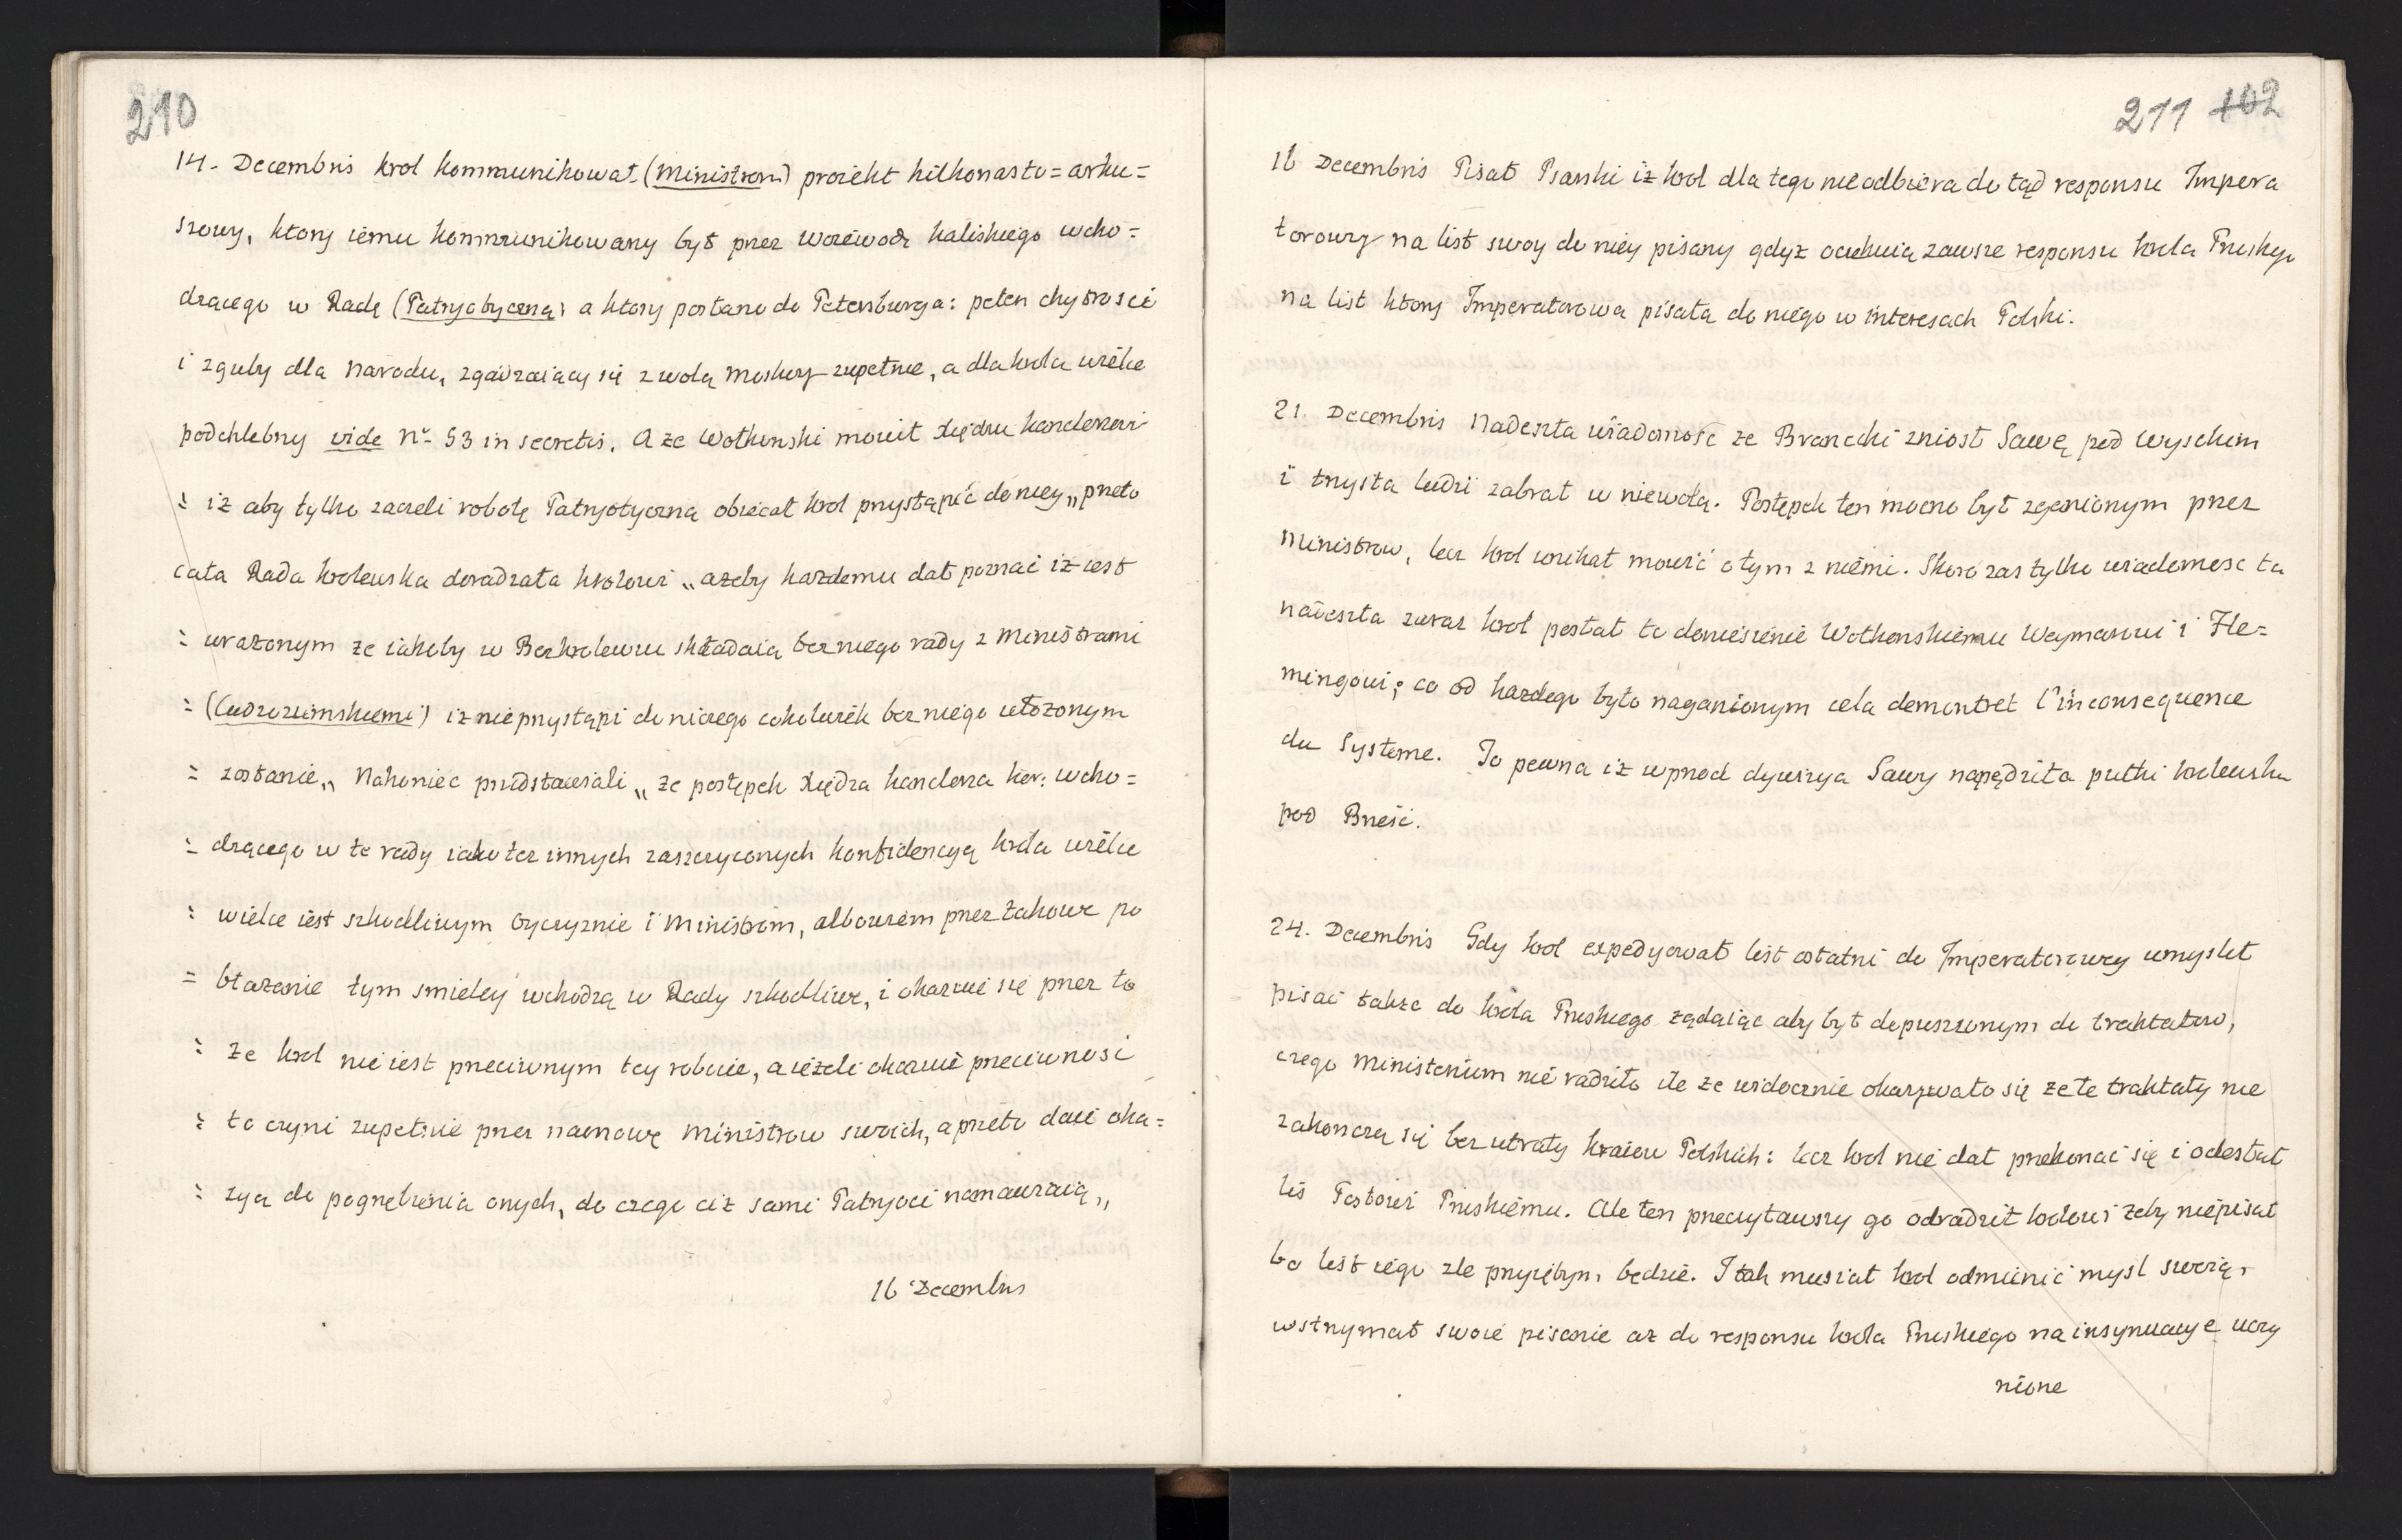 210
14. Decembris krol kommunikował (Ministrom) proiekt kilkonasto=arku=
szowy, ktory iemu kommunikowany był przez Woiewodę kaliskiego wcho=
dzącego w Radę (Patryotyczną) a ktory posłano do Petersburga: pełen chytrości
i zguby dla Narodu, zgadzaiący się z wolą Moskwy zupełnie, a dla krola wielce
podchlebny vide N° 53 in secretis. A że Wołkonski mowił Xiędzu kanclerzowi
= iż aby tylko zaczeli robotę Patryotyczną obiecał krol przystąpić do niey „ przeto
cała Rada krolewska doradzała krolowi „ ażeby każdemu dał poznać iż iest
= urażonym że iakoby w Bezkrolewiu składaią bez niego rady z Ministrami
= (Cudzoziemskiemi) iż nie przystąpi do niczego cokolwiek bez niego ułożonym
= zostanie „ Nakoniec przedstawiali „ że postępek Xiędza kanclerza kor: wcho=
= dzącego w te rady iako też innych zaszczyconych konfidencyą krola wielce
= wielce iest szkodliwym Oyczyznie i Ministrom, albowiem przez takowe po
= błażanie tym smieley wchodzą w Rady szkodliwe, i okazuie się przez to
= że krol nie iest przeciwnym tey robocie, a ieżeli okazuie przeciwnosi
= to czyni zupełnie przez namowę Ministrow swoich, a przeto daie oka=
= zyą do pognębienia onych, do czego ciż sami Patryoci namawiaią „
16 Decembris
211 102
16 Decembris Pisał Psarski iż krol dla tego nie odbiera do tąd responsu Impera
torowy na list swoy do niey pisany gdyż oczekuią zawsze responsu krola Pruskego
na list ktory Imperatorowa pisała do niego w interesach Polski.
21. Decembris Nadeszła wiadomość że Branecki zniosł Sawę pod Wyschim
i trzysta ludzi zabrał w niewolą. Postępek ten mocno był zganionym przez
Ministrow, lecz krol unikał mowić o tym z niemi. Skoro zas tylko wiadomosc ta
nadeszła zaraz krol posłał to doniesienie Wołkonskiemu Weymarowi i Fle=
mingowi; co od każdego było naganionym cela demontret l'inconsequence
du Systeme. To pewna iż wprzod dywizya Sawy napędziła pułki krolewskie
pod Brześć.
24. Decembris Gdy krol expedyował list ostatni do Imperatorowey umyslił
pisać także do krola Pruskiego żądaiąc aby był dopuszczonym do traktatow,
czego Ministerium nie radziło ile że widocznie okazywało się że te traktaty nie
zakonczą się bez utraty kraiow Polskich: lecz krol nie dał przekonać się i odesłał
lis Posłowi Pruskiemu. Ale ten przeczytawszy go odradził krolowi żeby nie pisał
bo list iego zle przyiętym będzie. I tak musiał krol odmienić mysl swoią,
wstrzymał swoie pisanie aż do responsu krola Pruskiego na insynuacye uczy
nione